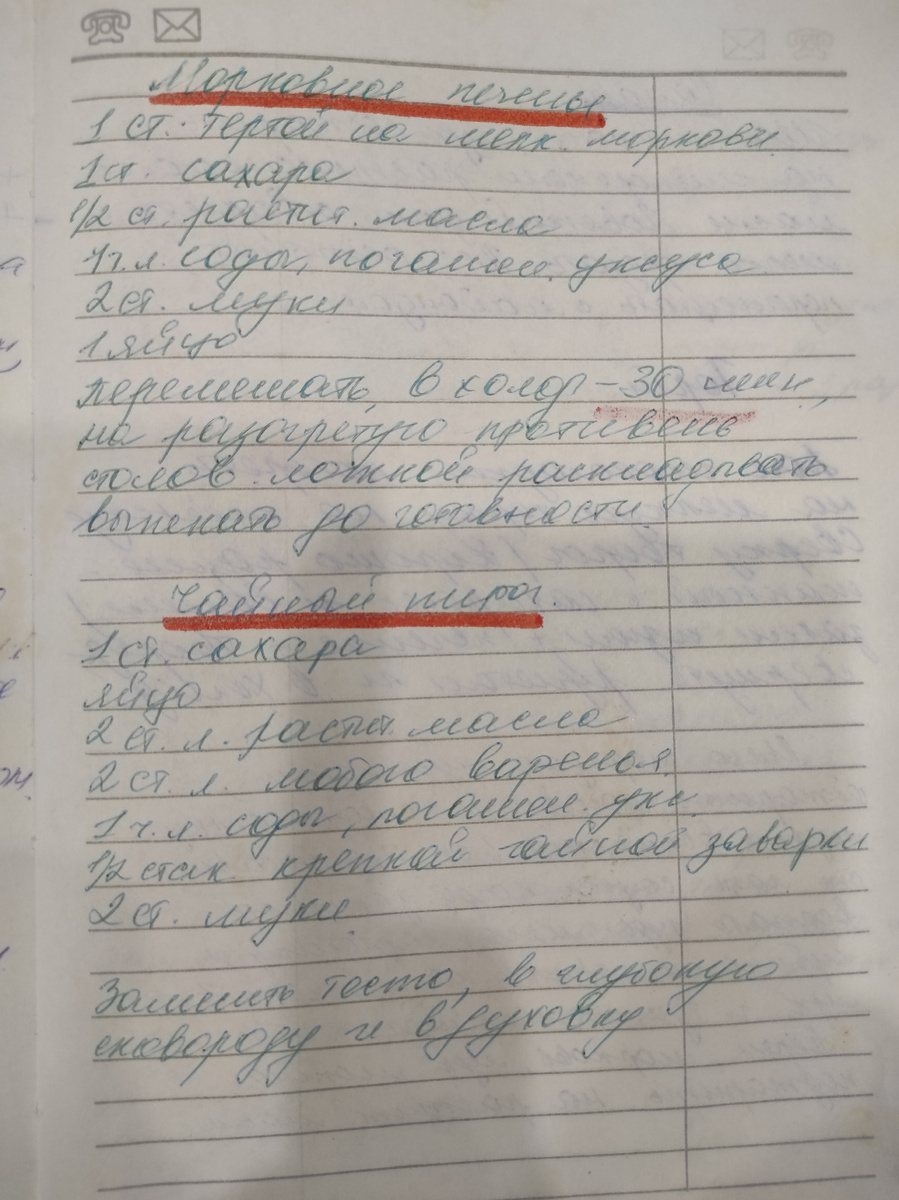 Морковное печенье
1 ст. тертой на мелк. моркови
1 ст. сахара
1/2 ст. растит. масла
1 ч. л. соды, погашен. уксуса
2 ст. муки
1 яйцо
перемешать, в холод - 30 мин,
на разогретую противень
столов. ложкой раскладывать
выпекать до готовности
Чайный пирог.
1 ст. сахара
яйцо
2 ст. л. растит. масла
2 ст. л. любого варенья
1 ч. л. соды, погашен. укс.
1/2 стак. крепкой чайной заварки
2 ст. муки
Замесить тесто, в глубокую
сковороду и в духовку